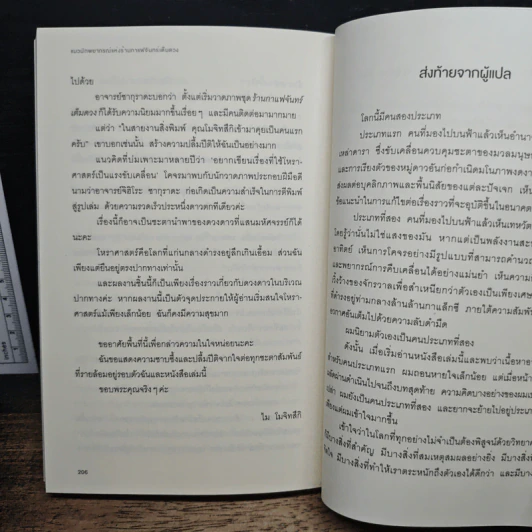 ไปด้วย
อาจารย์ซากุราดะบอกว่า ตั้งแต่เริ่มวาดภาพชุด ร้านกาแฟจันทร์
เต็มดวง ก็ได้รับความนิยมมากขึ้นเรื่อยๆ และมีคนติดต่อมามากมาย
แต่ว่า "ในสายงานสิ่งพิมพ์ คุณโมจิทสึกิเข้ามาคุยเป็นคนแรก
ครับ" เขาบอกเช่นนั้น สร้างความปลื้มปีติให้ฉันเป็นอย่างมาก
แนวคิดที่บ่มเพาะมาหลายปีว่า "อยากเขียนเรื่องที่ใช้โหรา-
ศาสตร์เป็นแรงขับเคลื่อน" โคจรมาพบกับนักวาดภาพประกอบฝีมือดี
นามว่าอาจารย์จิฮิโระ ซากุราดะ ก่อเกิดเป็นความสำเร็จในการตีพิมพ์
สู่รูปเล่ม ด้วยความรวดเร็วประหนึ่งดาวตกทีเดียวค่ะ
เรื่องนี้ก็อาจเป็นชะตานำพาของดวงดาวที่แสนมหัศจรรย์ก็ได้
นะคะ
โหราศาสตร์คือโลกที่แก่นกลางดำรงอยู่ลึกเกินเอื้อม ส่วนฉัน
เพียงแต่ยืนอยู่ตรงปากทางเท่านั้น
และผลงานชิ้นนี้ก็เป็นเรื่องราวเกี่ยวกับดวงดาวในบริเวณ
ปากทางค่ะ หากผลงานนี้เป็นตัวจุดประกายให้ผู้อ่านเริ่มสนใจโหรา-
ศาสตร์แม้เพียงเล็กน้อย ฉันก็คงมีความสุขมาก
ขออาศัยพื้นที่นี้เพื่อกล่าวความในใจหน่อยนะคะ
ฉันขอแสดงความซาบซึ้งและปลื้มปีติจากใจต่อทุกชะตาสัมพันธ์
ที่รายล้อมอยู่รอบตัวฉันและหนังสือเล่มนี้
ขอบพระคุณจริงๆ ค่ะ
ไม โมจิทสึกิ
206
ส่งท้ายจากผู้แปล
โลกนี้มีคนสองประเภท
ประเภทแรก คนที่มองไปบนฟ้าแล้วเห็นอำนา
เหล่าดารา ซึ่งขับเคลื่อนควบคุมชะตาของมวลมนุษ
และการเรียงตัวของหมู่ดาวอันก่อกำเนิดมโนภาพงดงา
ส่งผลต่อบุคลิกภาพและพื้นนิสัยของแต่ละปัจเจก เห็น
ข้อแนะนำในการแก้ไขต่อเรื่องราวที่จะอุบัติขึ้นในอนาคต
ประเภทที่สอง คนที่มองไปบนฟ้าแล้วเห็นเทหวัต
โดยรู้ว่านั่นไม่ใช่แสงของมัน หากแต่เป็นพลังงานสะท
อาทิตย์ เห็นการโคจรอย่างมีรูปแบบที่สามารถคำนวณ
และพยากรณ์การคืบเคลื่อนได้อย่างแม่นยำ เห็นความ
กิ้งร้างของจักรวาลเพื่อสำเหนียกว่าตัวเองเป็นเพียงเศษ
ที่ดำรงอยู่ท่ามกลางล้านล้านกาแล็กซี ภายใต้ความสัมพัน
อวกาศอันเต็มไปด้วยความลับดำมืด
ผมนิยามตัวเองเป็นคนประเภทที่สอง
ดังนั้น เมื่อเริ่มอ่านหนังสือเล่มนี้และพบว่าเนื้อหาอ
สำหรับคนประเภทแรก ผมถอนหายใจเล็กน้อย แต่เมื่อหน้า
ผลัดผ่านดำเนินไปจนถึงบทสุดท้าย ความคิดบางอย่างของผมเ
ปล่า ผมยังเป็นคนประเภทที่สอง และยากจะย้ายไปอยู่ประเภ
เพียงแต่ผมเข้าใจมากขึ้น
เข้าใจว่าในโลกที่ทุกอย่างไม่จำเป็นต้องพิสูจน์ด้วยวิทยาศ
มีบางสิ่งที่สำคัญ มีบางสิ่งที่สมเหตุสมผลอย่างยิ่ง มีบางสิ่งที่
มีบางสิ่งที่ทำให้เราตระหนักถึงตัวเองได้ดีกว่า และมีบาง